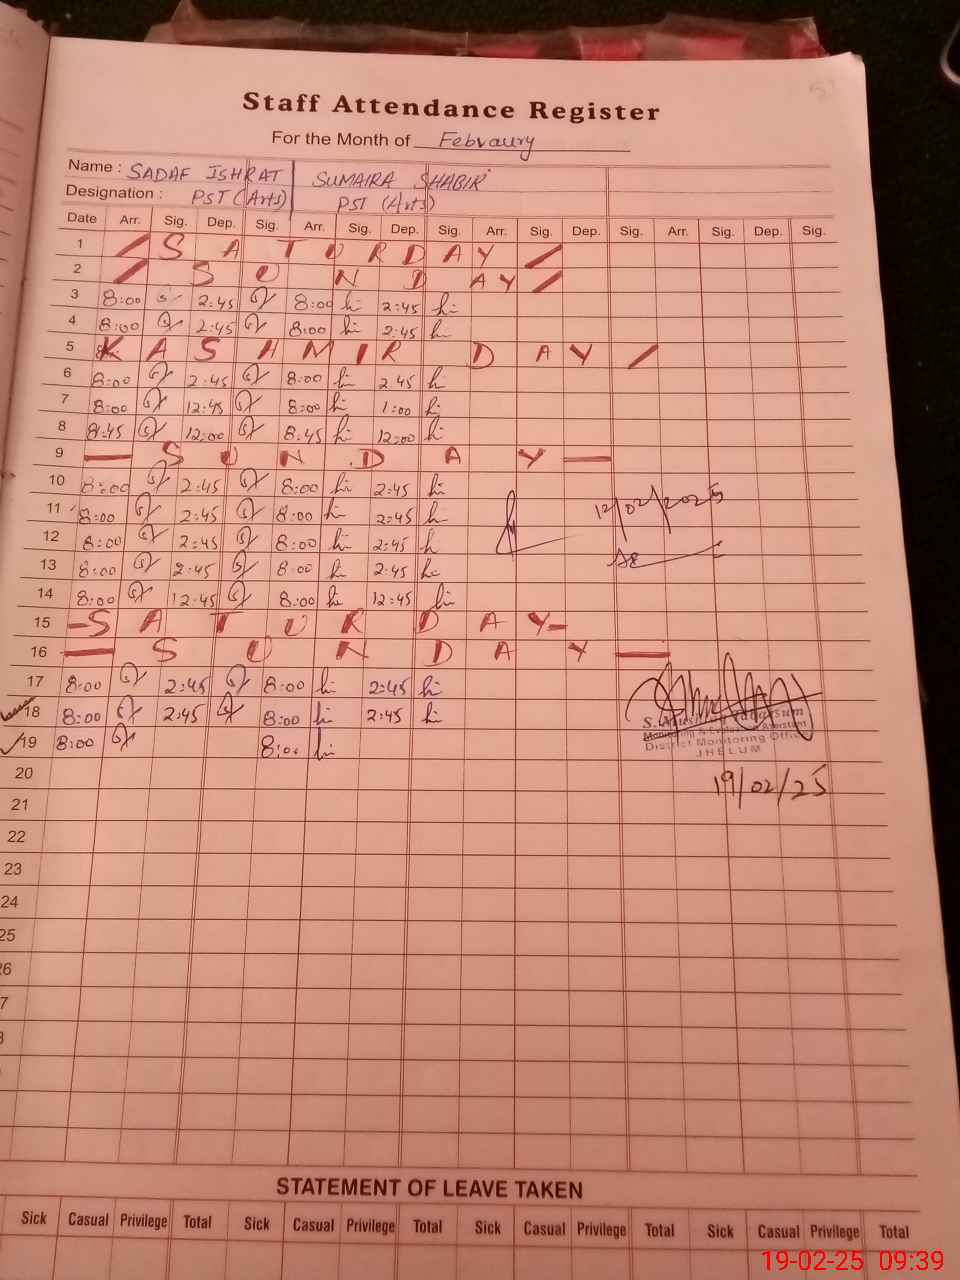 Staff Attendance Register
For the Month of Febraury
Name : SADAF ISHRAT SUMAIRA SHABIR
Designation : PST (Arts) PST (Arts)
Date Arr. Sig. Dep. Sig. Arr. Sig. Dep. Sig. Arr. Sig. Dep. Sig. Arr. Sig. Dep. Sig.
1 SATURDAY
2 SUNDAY
3 8:00 2:45 8:00 2:45
4 8:00 2:45 8:00 2:45
5 KASHMIR DAY
6 8:00 2:45 8:00 2:45
7 8:00 12:45 8:00 1:00
8 8:45 12:00 8:45 12:00
9 SUNDAY
10 8:00 2:45 8:00 2:45
11 8:00 2:45 8:00 2:45
12/02/2025
12 8:00 2:45 8:00 2:45
13 8:00 2:45 8:00 2:45
14 8:00 12:45 8:00 12:45
15 SATURDAY
16 SUNDAY
17 8:00 2:45 8:00 2:45
18 8:00 2:45 8:00 2:45
Monitoring & Assistant
19 8:00 8:00
District Monitoring Office
JHELUM
20
19/02/25
21
22
23
24
25
26
7
STATEMENT OF LEAVE TAKEN
Sick Casual Privilege Total Sick Casual Privilege Total Sick Casual Privilege Total Sick Casual Privilege Total
19-02-25 09:39